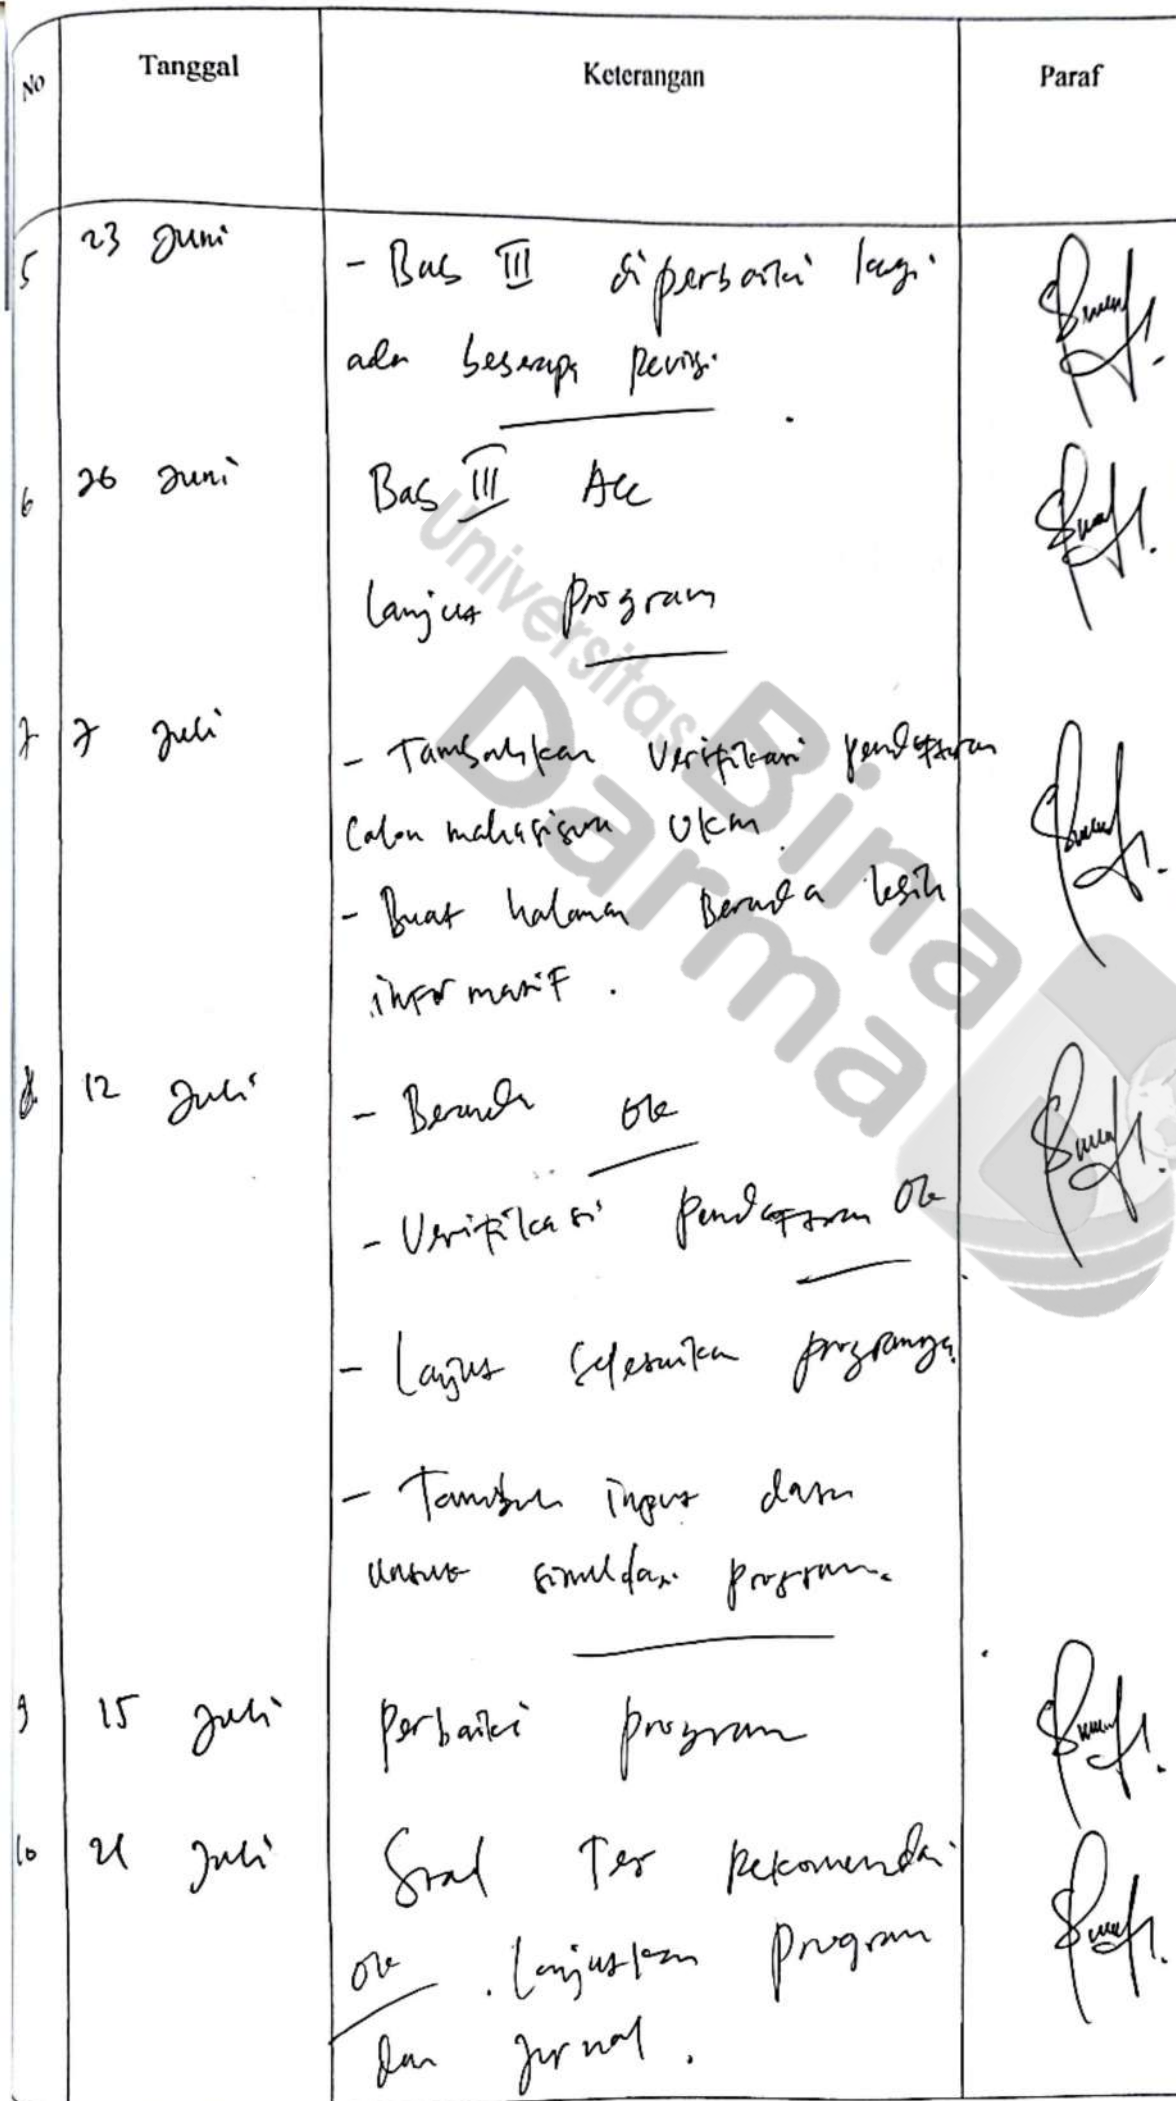 No Tanggal Keterangan Paraf
5 23 Juni - Bab III diperbaiki lagi
ada beberapa revisi
6 26 Juni Bab III Acc
lanjut program
7 7 Juli - Tambahkan verifikasi pendaftaran
Calon mahasiswa UKM.
- Buat halaman Beranda lebih
informatif.
8 12 Juli - Beranda ok
- Verifikasi pendaftaran ok
- Lanjut selesaikan programnya.
- Tambah input data
untuk simulasi program.
9 15 Juli Perbaiki program
10 21 Juli Soal Tes Rekomendasi
ok . Lanjutkan program
dan jurnal.
Universitas
Bina
Darma